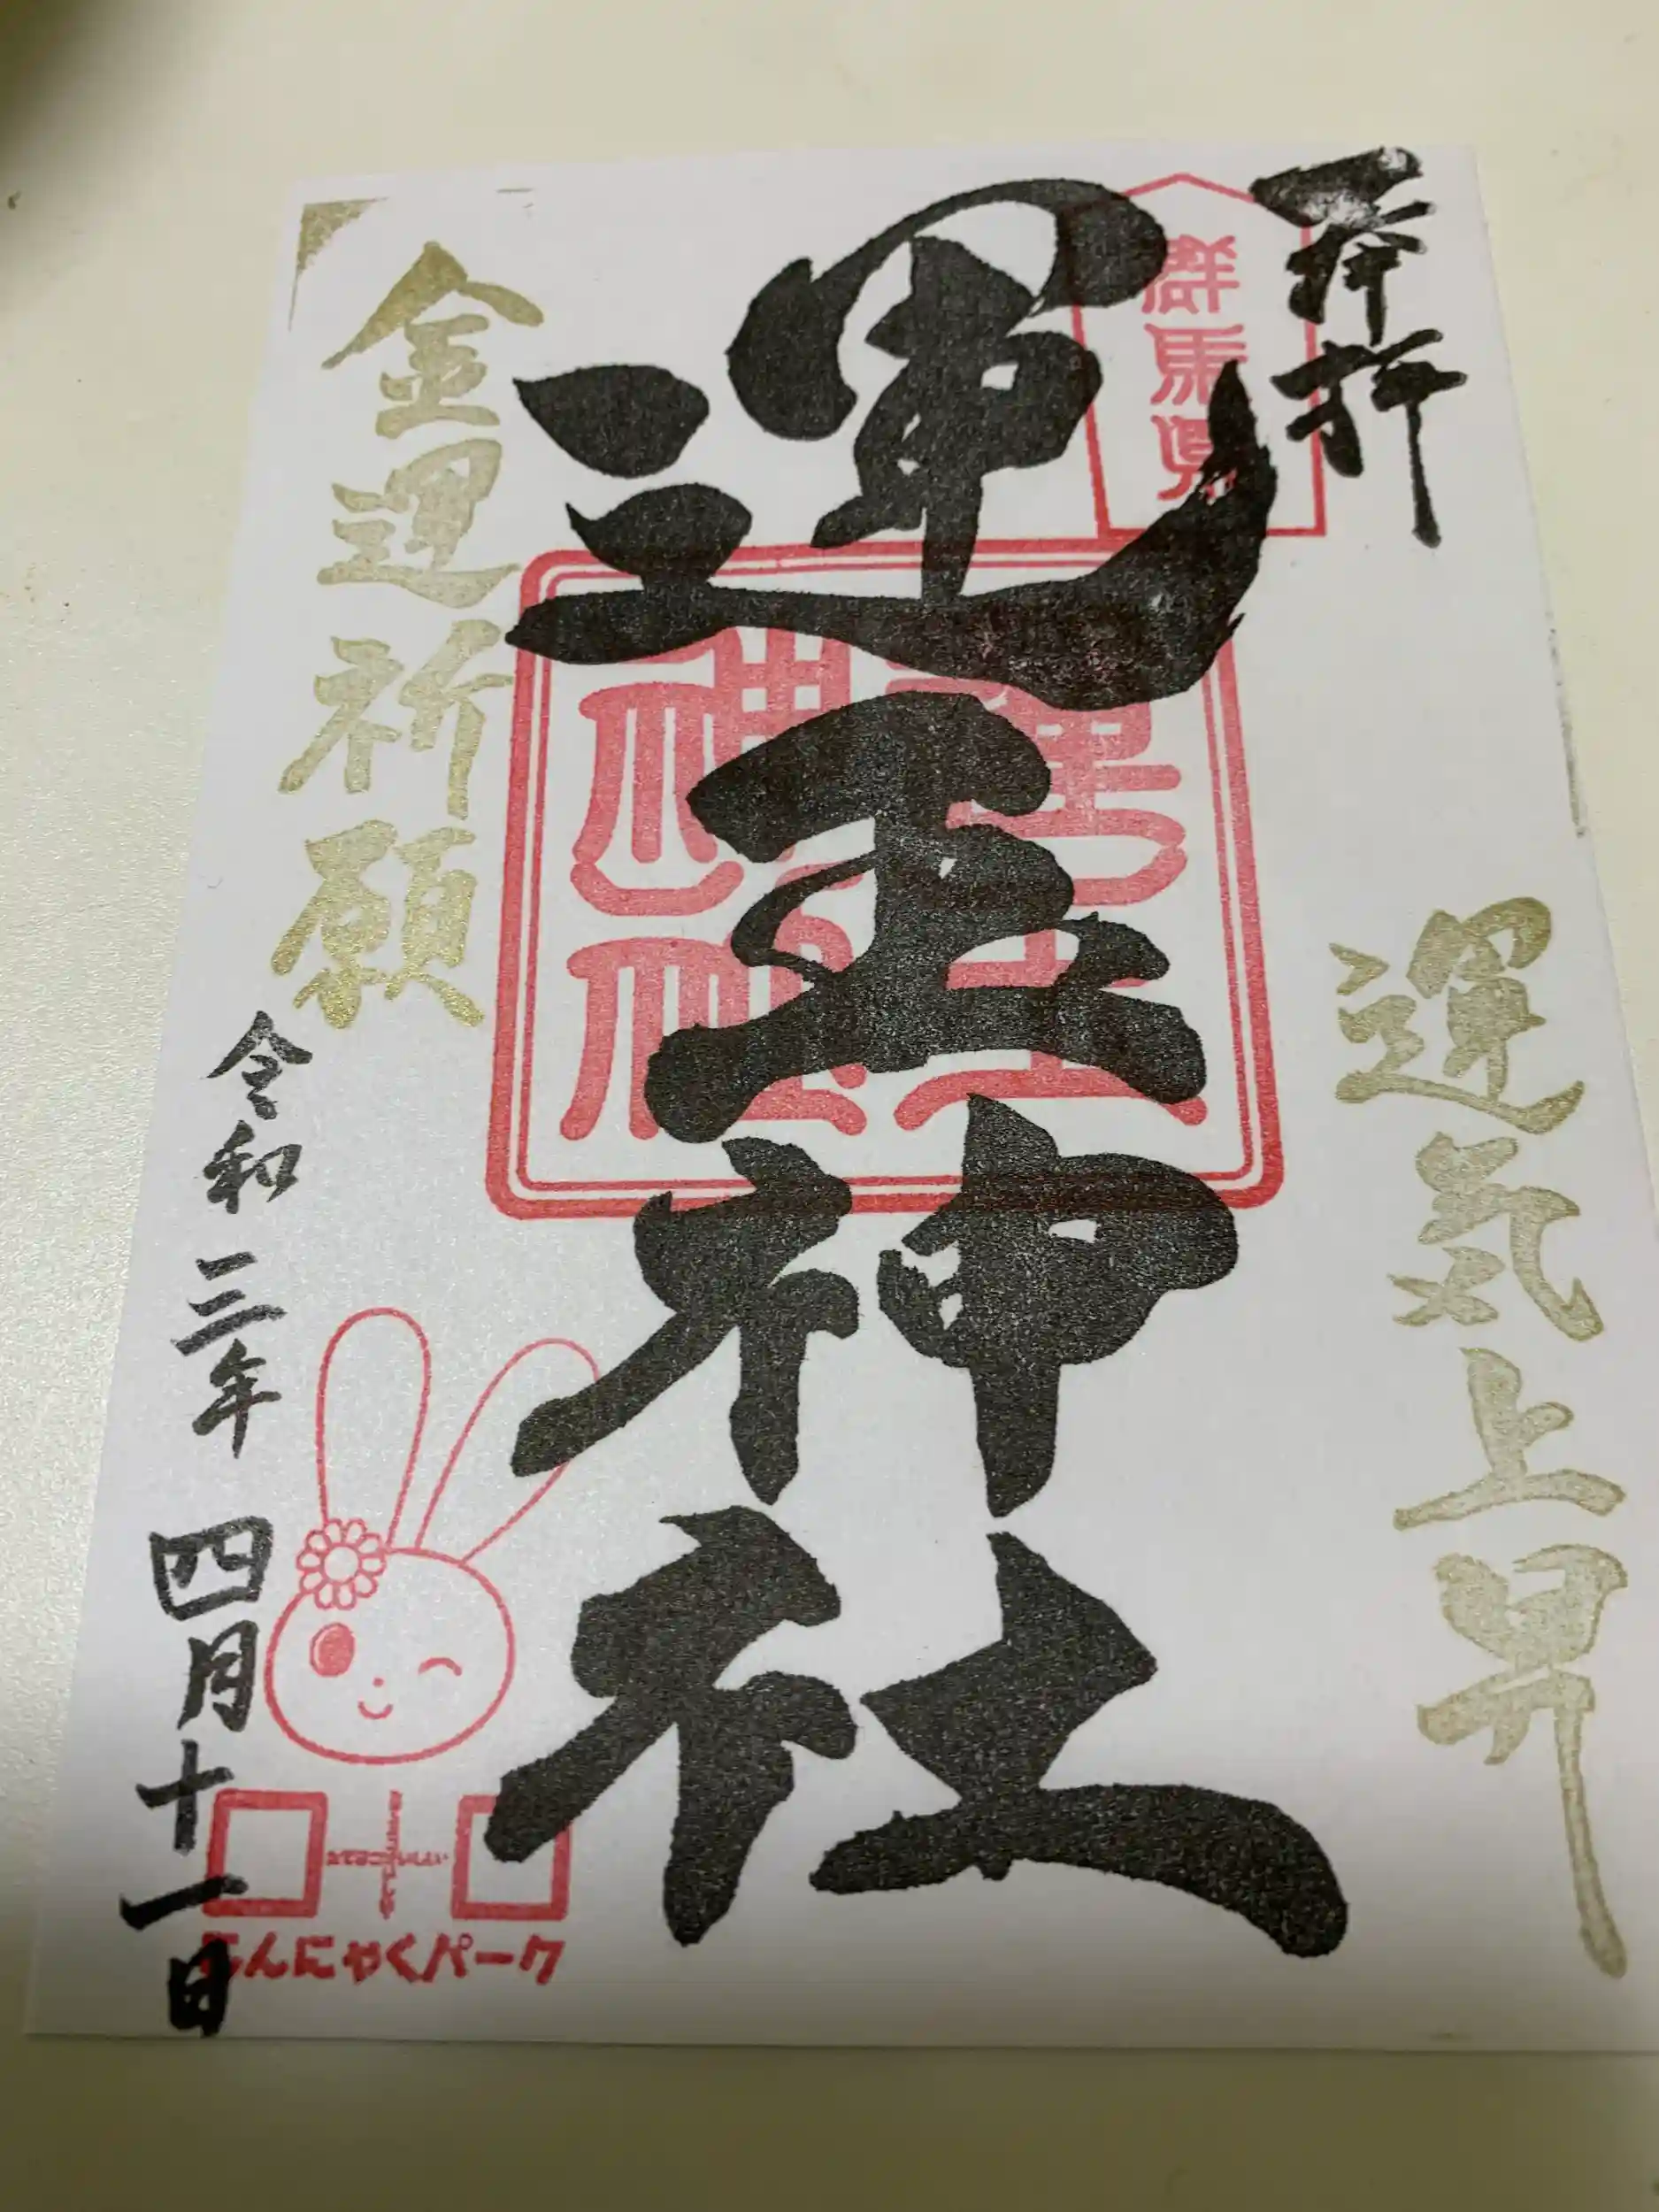 奉拝
群馬県
運気上昇
運玉神社
金運祈願
令和三年四月十一日
こんにゃくパーク